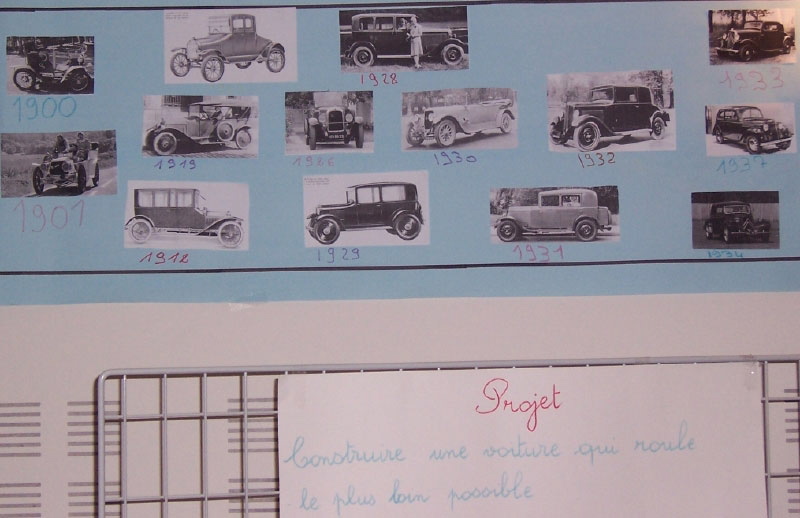 1928
1933
1900
1919
1926
1930
1932
1937
1901
1912
1929
1931
1934
Projet
Construire une voiture qui roule
le plus loin possible